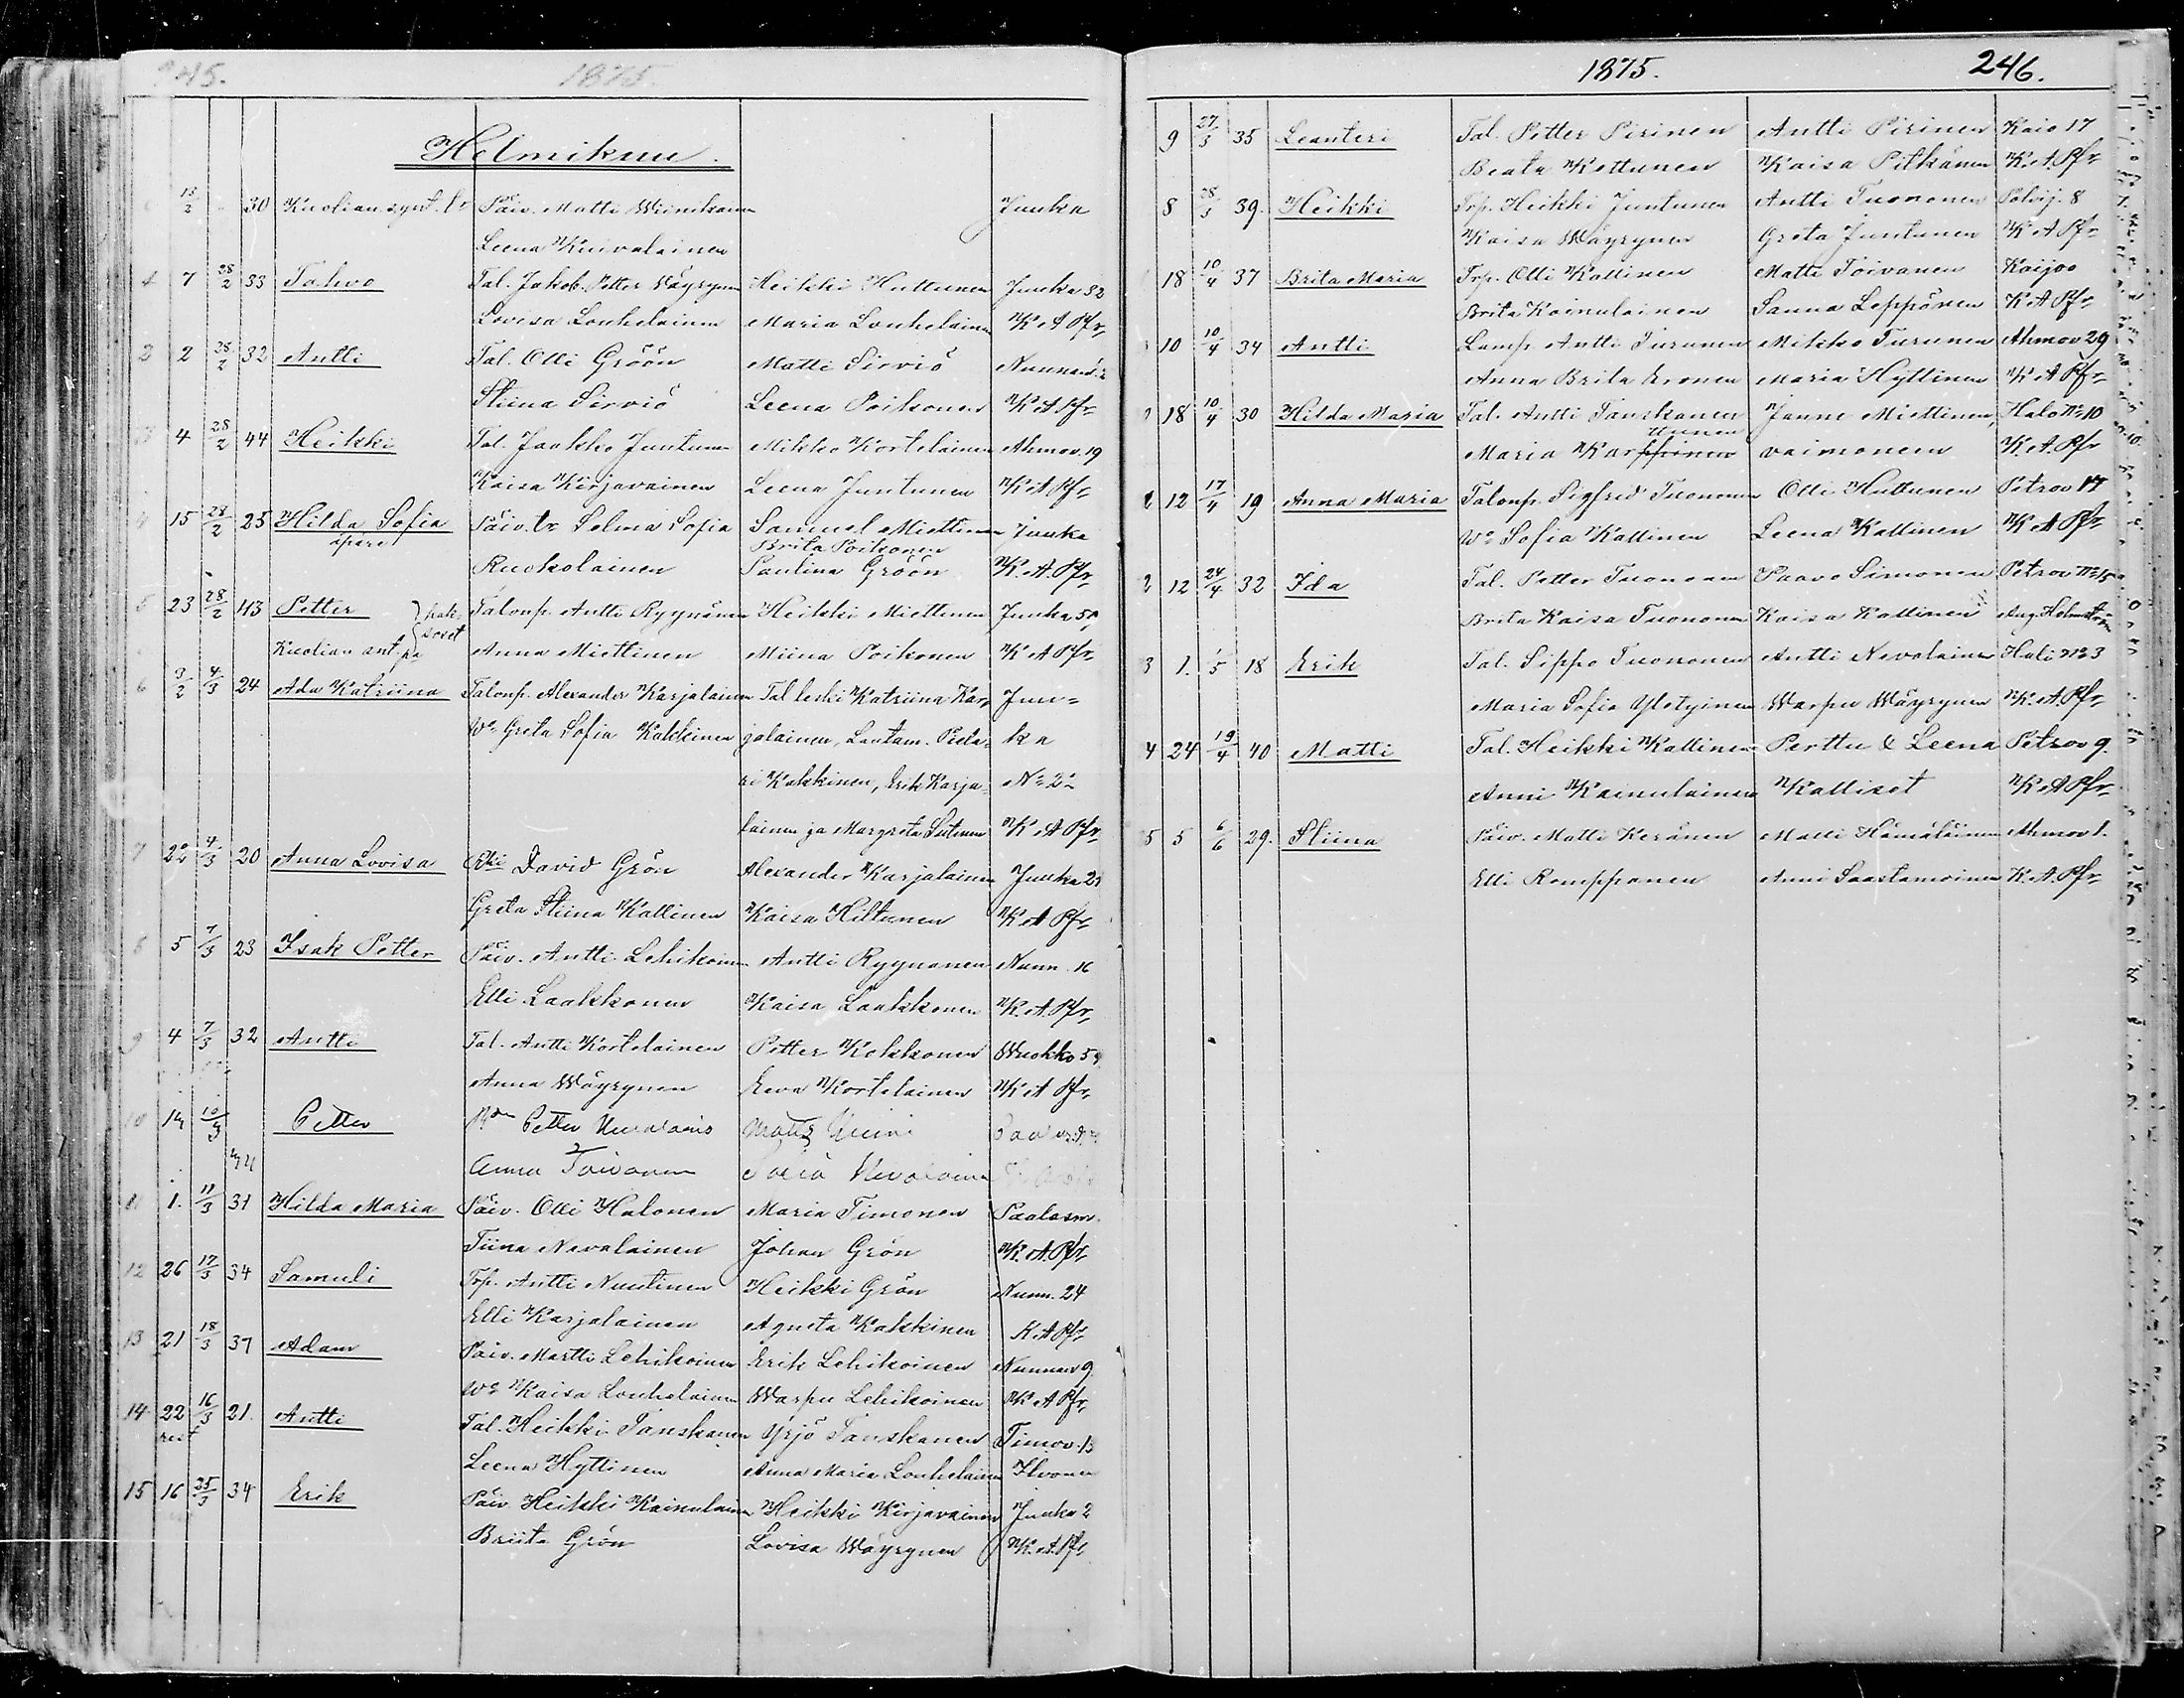 245. 1875.
Helmikuu.
13/2 30 Kuolian synt. Päiv. Matti Wiinikainen Juuka
Leena Kuivalainen
4 7 28/2 33 Tahvo Tal. Jakob Petter Wäyrynen Heikki Huttunen Juuka 32
Lovisa Louhelainen Maria Louhelainen K. A. Pfr
2 2 28/2 32 Antti Tal. Olli Gröön Matti Sirviö Nunnanl. 2
Stiina Sirviö Leena Poikonen K A Pfr
3 4 28/2 44 Heikki Tal. Jaakko Juntunen Mikko Kortelainen Ahmov. 19
Kaisa Kirjavainen Leena Juntunen K A Pfr
4 15 28/2 25 Hilda Sofia Päiv. tr Selma Sofia Samuel Miettinen Juuka
äpäre Brita Poikonen
Ruokolainen Paulina Gröön K. A. Pfr
5 23 28/2 43 Petter kak- Talonp. Antti Ryynänen Heikki Miettinen Juuka 58
soset
Kuolian ant. Anna Miettinen Miina Poikonen K A Pfr
6 3/2 4/3 24 Ada Katriina Talonp. Alexander Karjalainen Tal leski Katriina Kar- Juu-
Wo Greta Sofia Kakkinen jalainen, Lautam. Peeta- ka
ri Kakkinen, Erik Karja- No 2
lainen ja Margreta Sutinen K A Pfr
7 22 4/3 20 Anna Lovisa David Grön Alexander Karjalainen Juuka 21
Greta Stiina Kallinen Kaisa Hiltunen K A Pfr
8 5 7/3 23 Isak Petter Päiv. Antti Lehikoinen Antti Ryynänen Nunn. 16
Elli Laakkonen Kaisa Laakkonen K. A. Pfr
9 4 7/3 32 Antti Tal. Antti Kortelainen Petter Kokkonen Wuokko 59
Anna Wäyrynen Eeva Kortelainen K A Pfr
10 14 10/3 Petter Petter Nevalainen
Anna Toivonen Nevalainen
11 1. 11/3 31 Hilda Maria Päiv. Olli Halonen Maria Timonen Paalasm.
Tiina Nevalainen Johan Grön K. A. Pfr
12 26 17/3 34 Samuli Trp. Antti Nuutinen Heikki Grön Nunn. 24
Elli Karjalainen Agneta Kakkinen K A Pfr
13 21 18/3 37 Adam Päiv. Martti Lehikoinen Erik Lehikoinen Nunnan 9
Wo Kaisa Louhelainen Warpu Lehikoinen K A Pfr
14 22 16/3 21. Antti Tal. Heikki Tanskanen Yrjö Tanskanen Timov. 13
Leena Hyttinen Anna Maria Louhelainen Ilvonen
15 16 25/3 34 Erik Päiv Heikki Kainulainen Heikki Kirjavainen Juuka 2
Briita Grön Lovisa Wäyrynen K. A. Pfr
1875. 246.
9 27/3 35 Leanteri Tal. Petter Pirinen Antti Pirinen Kaio 17
Beata Kettunen Kaisa Pitkänen K. A. Pfr
8 28/3 39. Heikki Trp. Heikki Juntunen Antti Tuononen Polvij. 8
Kaisa Wäyrynen Greta Juntunen K A Pfr
18 10/4 37 Brita Maria Trp. Olli Kallinen Matti Toivanen Kaijoo
Brita Kainulainen Sanna Leppänen K A Pfr
10 10/4 34 Antti Lamp. Antti Turunen Mikko Turunen Ahmov 29
Anna Brita Eronen Maria Hyttinen K A Pfr
18 10/4 30 Hilda Maria Tal. Antti Tanskanen Janne Miettinen, Halo No 10
ttunen
Maria Karppinen vaimoneen K. A. Pfr
12 17/4 19 Anna Maria Talonp. Sigfrid Tuononen Olli Huttunen Petrov 17
Wo Sofia Kallinen Leena Kallinen K A Pfr
2 12 24/4 32 Ida Tal. Petter Tuononen Paavo Simonen Petrov No 15
Brita Kaisa Tuononen Kaisa Kallinen Aug. Holmström
3 1. 1/5 18 Erik Tal. Sippo Tuononen Antti Nevalainen Hali No 3
Maria Sofia Yletyinen Warpu Wäyrynen K. A. Pfr
4 24 19/4 40 Matti Tal. Heikki Kallinen Perttu & Leena Petrov 9.
Anni Kainulainen Kalliset K A Pfr
5 5 6/6 29. Stiina Päiv. Matti Keränen Matti Hämäläinen Ahmov 1.
Elli Romppanen Anni Saastamoinen K. A. Pfr